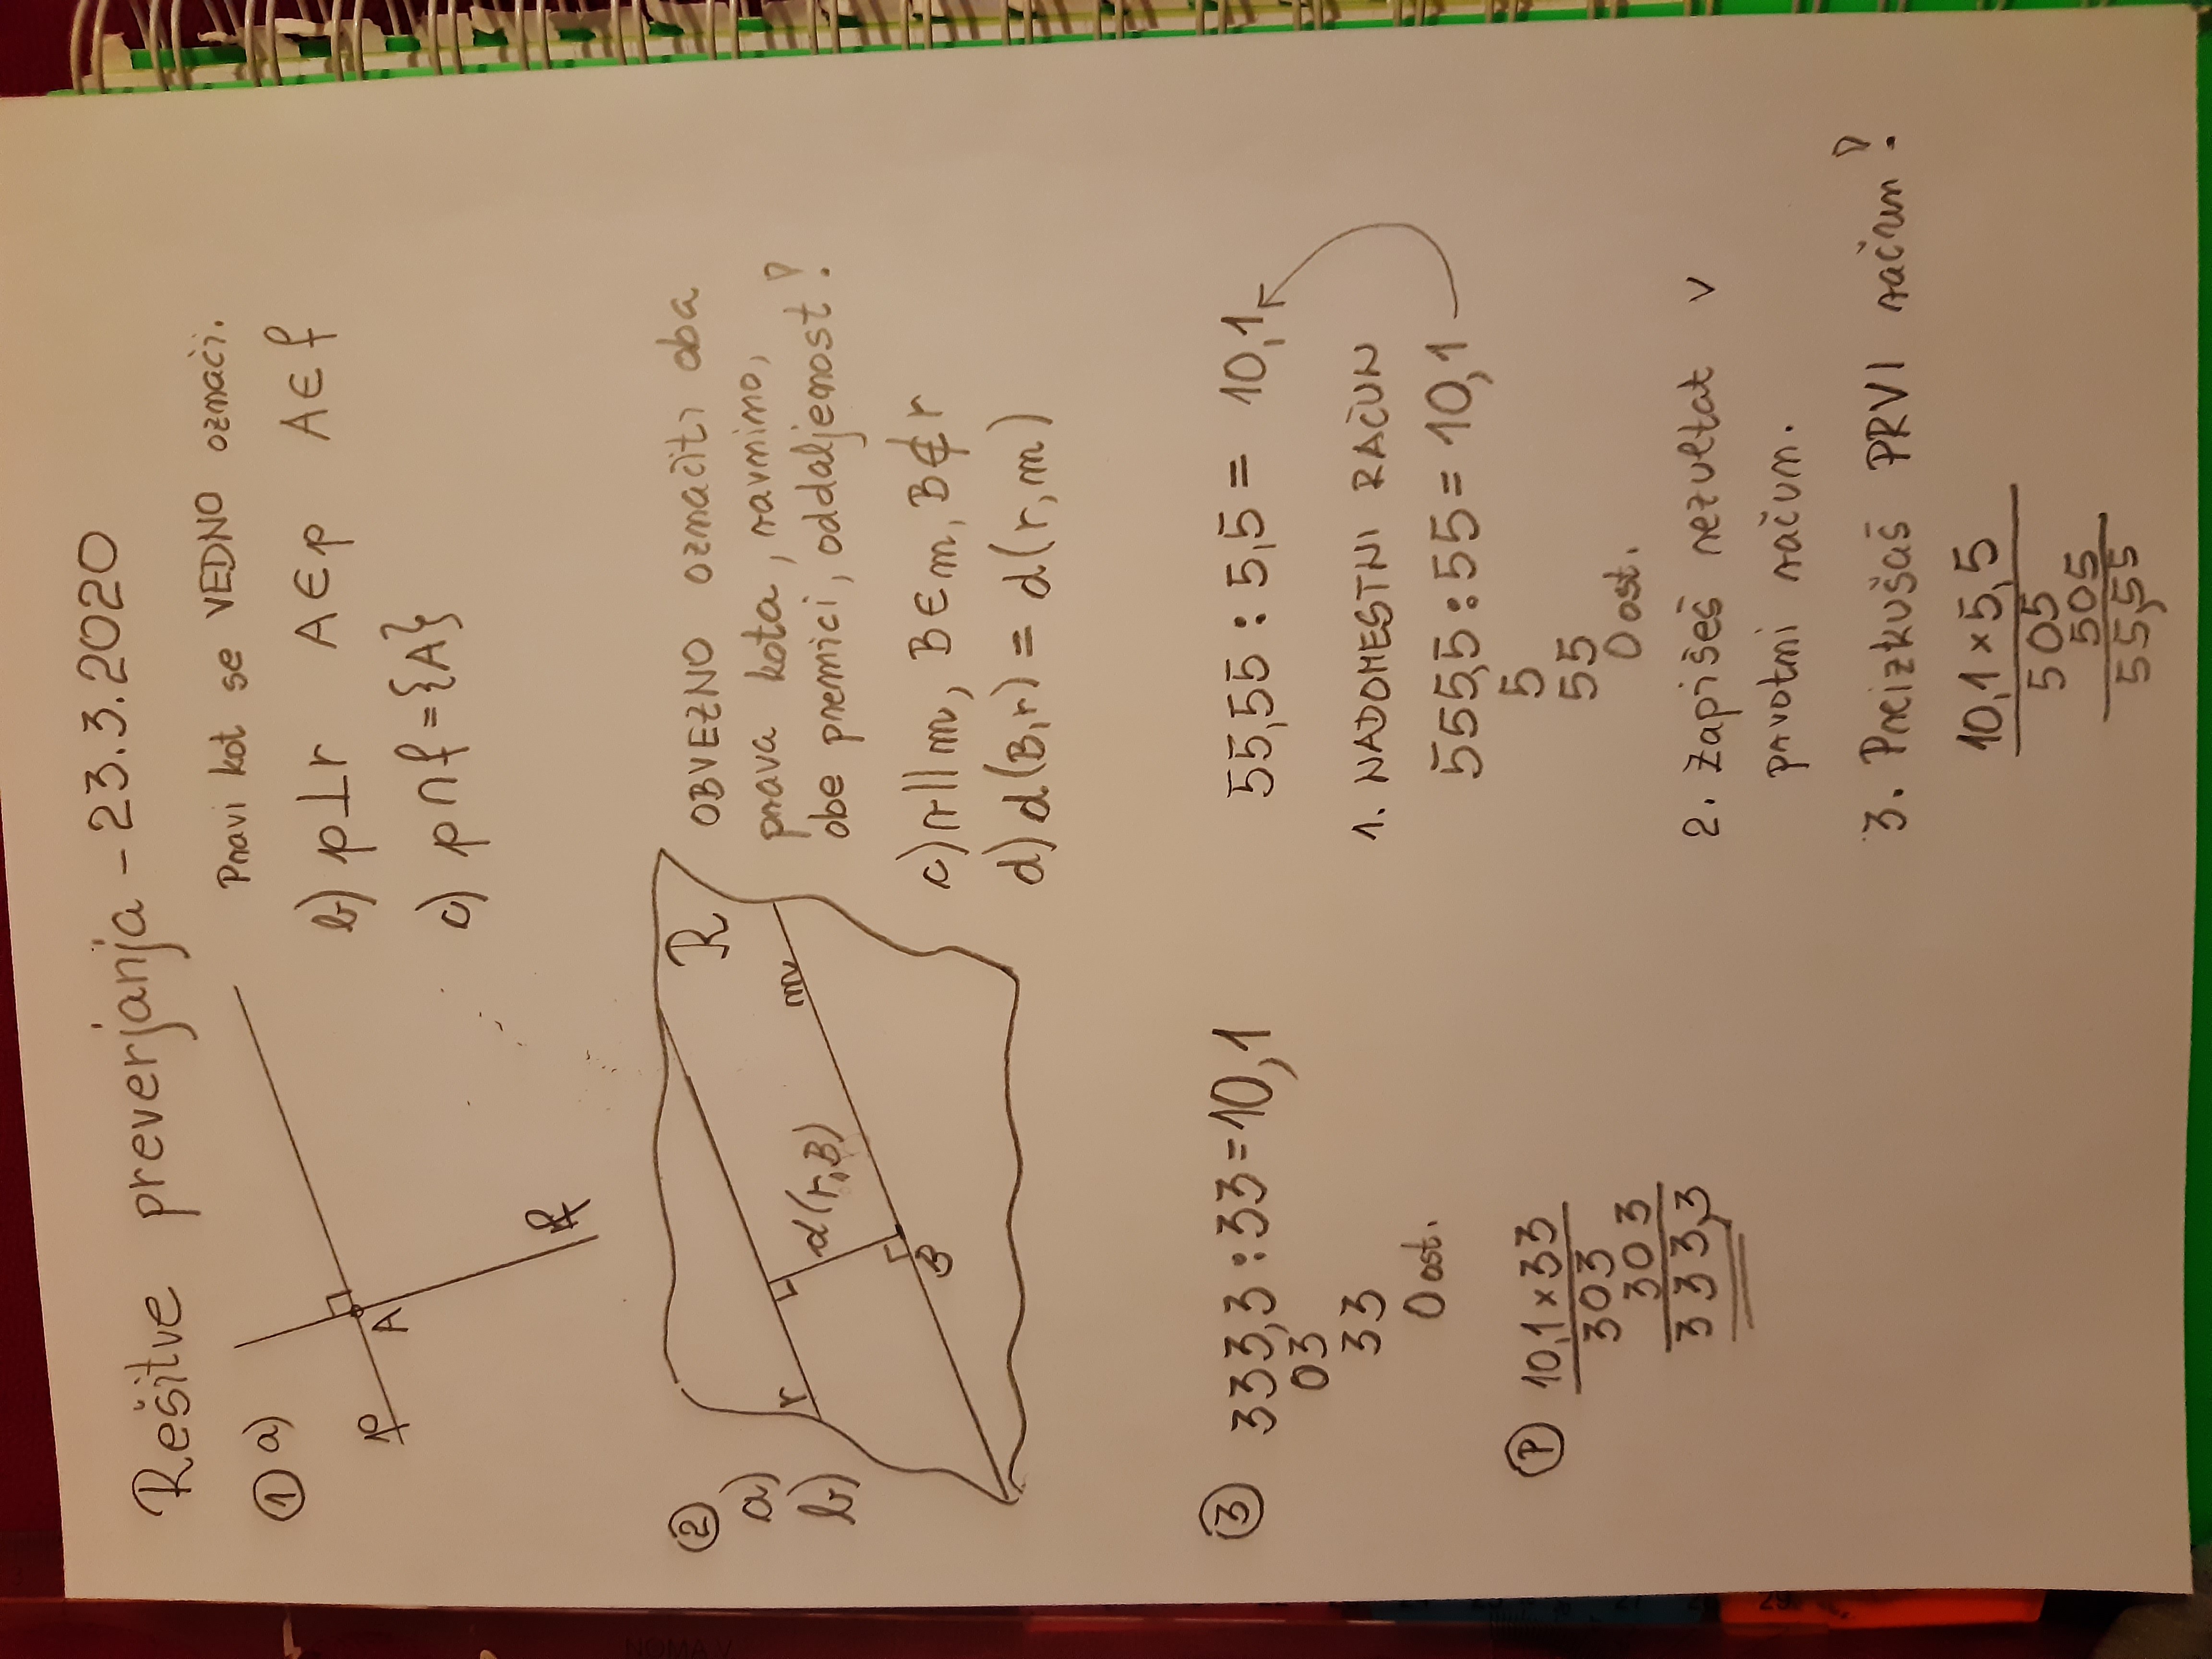 Rešitve preverjanja - 23.3.2020
① a)
p
A
Pravi kot se VEDNO označi.
b) p⊥r A∈p A∈f
c) p∩f={A}
②
a)
b)
r
d(r,B)
B
m
R
OBVEZNO označiti oba
prava kota, ravnino,
obe premici, oddaljenost!
c) r||m, B∈m, B∉r
d) d(B,r) = d(r,m)
③ 333,3:33=10,1
03
33
0 ost.
Ⓟ 10,1×33
303
303
333,3
55,55 : 5,5 = 10,1
1. NADOMESTNI RAČUN
555,5:55=10,1
5
55
0 ost.
2. Zapišeš rezultat v
prvotni račun.
3. Preizkušaš PRVI račun!
10,1×5,5
505
505
55,55